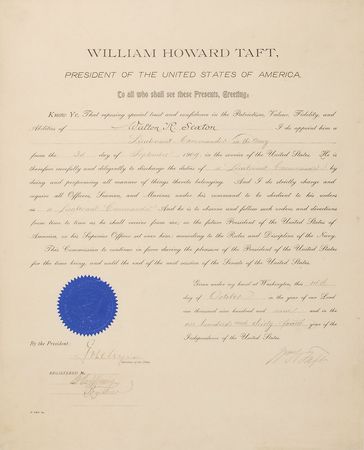 WILLIAM HOWARD TAFT,
PRESIDENT OF THE UNITED STATES OF AMERICA.
To all who shall see these Presents, Greeting:
Know Ye, That reposing special trust and confidence in the Patriotism, Valour, Fidelity, and
Abilities of Walton R. Sexton I do appoint him a
Lieutenant Commander in the Navy
from the day of September 1909, in the service of the United States. He is
therefore carefully and diligently to discharge the duties of a Lieutenant Commander by
doing and performing all manner of things thereto belonging. And I do strictly charge and
require all Officers, Seamen, and Marines under his command to be obedient to his orders
as a Lieutenant Commander And he is to observe and follow such orders and directions
from time to time as he shall receive from me, or the future President of the United States of
America, or his Superior Officer set over him, according to the Rules and Discipline of the Navy.
This Commission to continue in force during the pleasure of the President of the United States
for the time being, and until the end of the next session of the Senate of the United States.
Given under my hand at Washington, this
day of October in the year of our Lord
one thousand nine hundred and nine and in the
one hundred and thirty-fourth year of the
Independence of the United States.
By the President:
Wm H Taft
REGISTERED